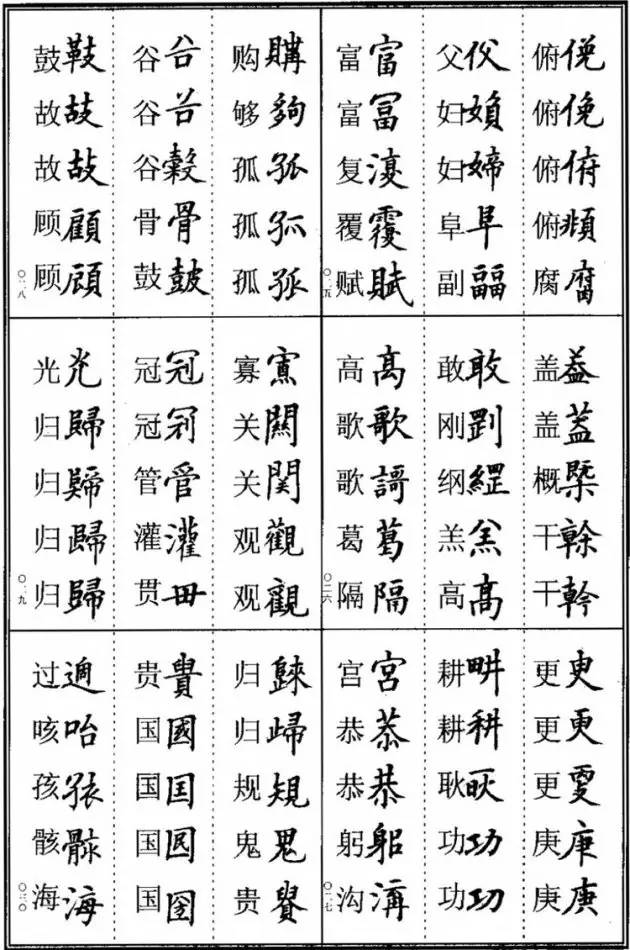 俯俛俯俛俯俯俯頫腐腐
父㐸妇媍妇婦阜阜副副
富富富冨复復覆覆赋賦
〇二五
盖葢盖蓋概槩干榦干幹
敢敢刚剛纲綱羔羔高髙
高高歌歌歌謌葛葛隔隔
〇二六
更更更更更㪅庚庚庚庚
耕畊耕耕耿耿功功功㓛
宫宫恭恭恭恭躬躬沟溝
〇二七
购購够夠孤孤孤孤孤孤
谷谷谷谷谷穀骨骨鼓皷
鼓鼓故故故故顾顧顾顧
〇二八
寡寡关關关関观觀观觀
冠冠冠冠管管灌灌贯毌
光光归歸归歸归歸归歸
〇二九
归歸归歸规規鬼鬼贵貴
贵貴国國国囯国圀国圀
过過咳咍孩孩骸骸海海
〇三〇